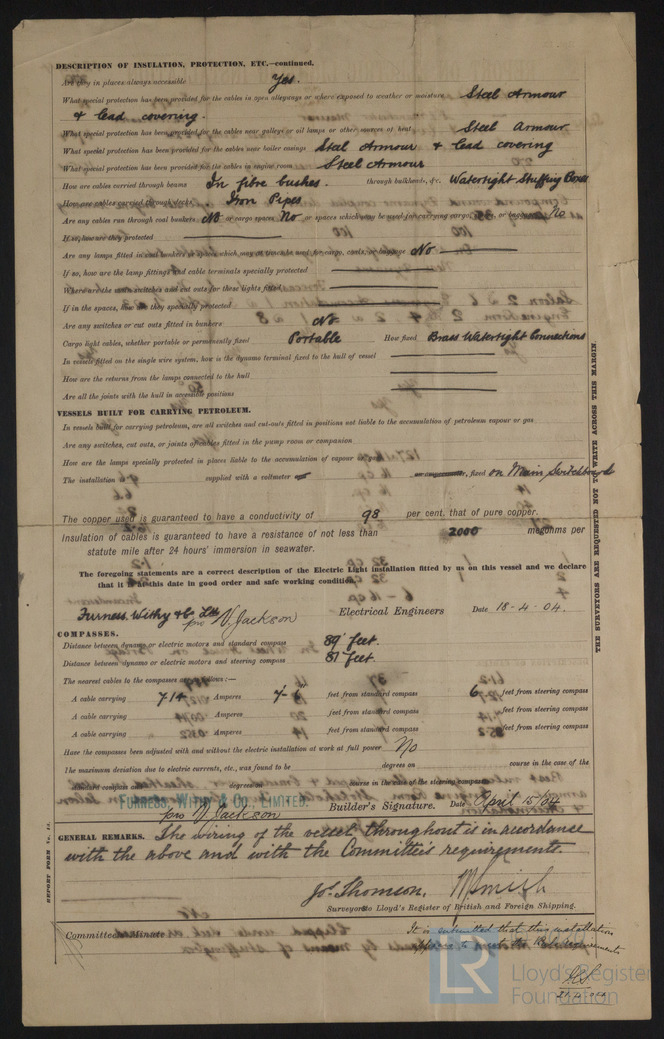 DESCRIPTION OF INSULATION, PROTECTION, ETC.—continued.
Are they in places always accessible Yes.
What special protection has been provided for the cables in open alleyways or where exposed to weather or moisture Steel Armour
& lead covering.
What special protection has been provided for the cables near galleys or oil lamps or other sources of heat Steel Armour
What special protection has been provided for the cables near boiler casings Steel Armour & lead covering
What special protection has been provided for the cables in engine room Steel Armour
How are cables carried through beams In fibre bushes. through bulkheads, &c. Watertight Stuffing Boxes
How are cables carried through decks. Iron Pipes
Are any cables run through coal bunkers No or cargo spaces No or spaces which may be used for carrying cargo, stores, or baggage No
If so, how are they protected
Are any lamps fitted in coal bunkers or spaces which may at times be used for cargo, coals, or baggage No
If so, how are the lamp fittings and cable terminals specially protected
Where are the main switches and cut outs for these lights fitted
If in the spaces, how are they specially protected
Are any switches or cut outs fitted in bunkers No
Cargo light cables, whether portable or permanently fixed Portable How fixed Brass Watertight Connections
In vessels fitted on the single wire system, how is the dynamo terminal fixed to the hull of vessel
How are the returns from the lamps connected to the hull
Are all the joints with the hull in accessible positions
VESSELS BUILT FOR CARRYING PETROLEUM.
In vessels built for carrying petroleum, are all switches and cut-outs fitted in positions not liable to the accumulation of petroleum vapour or gas
Are any switches, cut outs, or joints of cables fitted in the pump room or companion
How are the lamps specially protected in places liable to the accumulation of vapour or gas
The installation supplied with a voltmeter fixed on Main Switchboard
The copper used is guaranteed to have a conductivity of 98 per cent. that of pure copper.
Insulation of cables is guaranteed to have a resistance of not less than 2000 megohms per
statute mile after 24 hours' immersion in seawater.
The foregoing statements are a correct description of the Electric Light installation fitted by us on this vessel and we declare
that it is at this date in good order and safe working condition.
Furness, Withy & Co Ltd
pro N. Jackson Electrical Engineers Date 18-4-04.
COMPASSES.
Distance between dynamo or electric motors and standard compass 89 feet.
Distance between dynamo or electric motors and steering compass 81 feet.
The nearest cables to the compasses are as follows:—
A cable carrying 7.14 Amperes 7-6" feet from standard compass 6 feet from steering compass
A cable carrying Amperes feet from standard compass feet from steering compass
A cable carrying Amperes feet from standard compass feet from steering compass
Have the compasses been adjusted with and without the electric installation at work at full power No
The maximum deviation due to electric currents, etc., was found to be degrees on course in the case of the
standard compass and degrees on course in the case of the steering compass
FURNESS, WITHY & CO. LIMITED.
pro N. Jackson Builder's Signature. Date April 15/04
GENERAL REMARKS. The wiring of the vessel throughout is in accordance
with the above and with the Committee's requirements.
Jos. Thomson,
Surveyors to Lloyd's Register of British and Foreign Shipping.
Committee's Minute
It is submitted that this installation
appears to meet the Rule requirements
THE SURVEYORS ARE REQUESTED NOT TO WRITE ACROSS THIS MARGIN.
REPORT FORM No. 14.
LR Lloyd's Register
Foundation